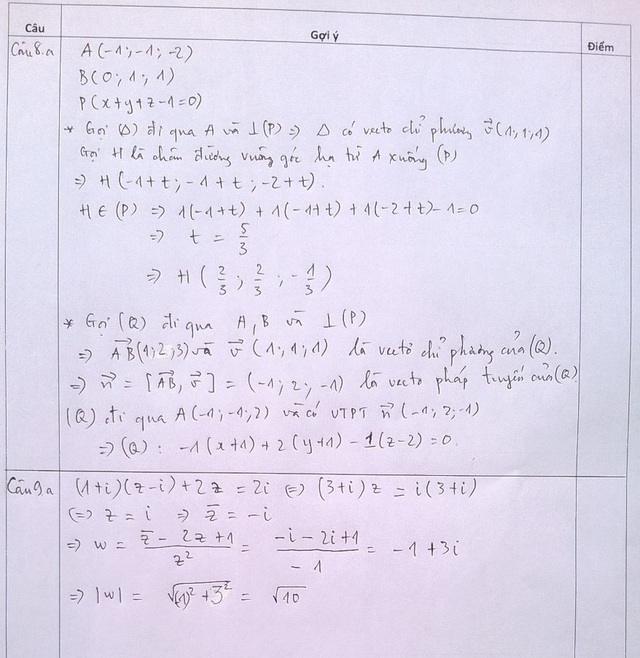 Câu Gợi ý Điểm
Câu 8.a A(-1; -1; -2)
B(0; 1; 1)
P(x+y+z-1=0)
* Gọi (Δ) đi qua A và ⊥(P) => Δ có vectơ chỉ phương v⃗(1; 1; 1)
Gọi H là chân đường vuông góc hạ từ A xuống (P)
=> H(-1+t; -1+t; -2+t).
H ∈ (P) => 1(-1+t) + 1(-1+t) + 1(-2+t) - 1 = 0
=> t = 5/3
=> H(2/3; 2/3; -1/3)
* Gọi (Q) đi qua A, B và ⊥(P)
=> AB⃗(1; 2; 3) và v⃗(1; 1; 1) là vectơ chỉ phương của (Q).
=> n⃗ = [AB⃗, v⃗] = (-1; 2; -1) là vectơ pháp tuyến của (Q)
(Q) đi qua A(-1; -1; 2) và có VTPT n⃗(-1; 2; -1)
=> (Q): -1(x+1) + 2(y+1) - 1(z-2) = 0.
Câu 9.a (1+i)(z-i) + 2z = 2i <=> (3+i)z = i(3+i)
<=> z = i => z̄ = -i
=> w = (z̄ - 2z + 1)/z² = (-i - 2i + 1)/-1 = -1 + 3i
=> |w| = √((1)² + 3²) = √10